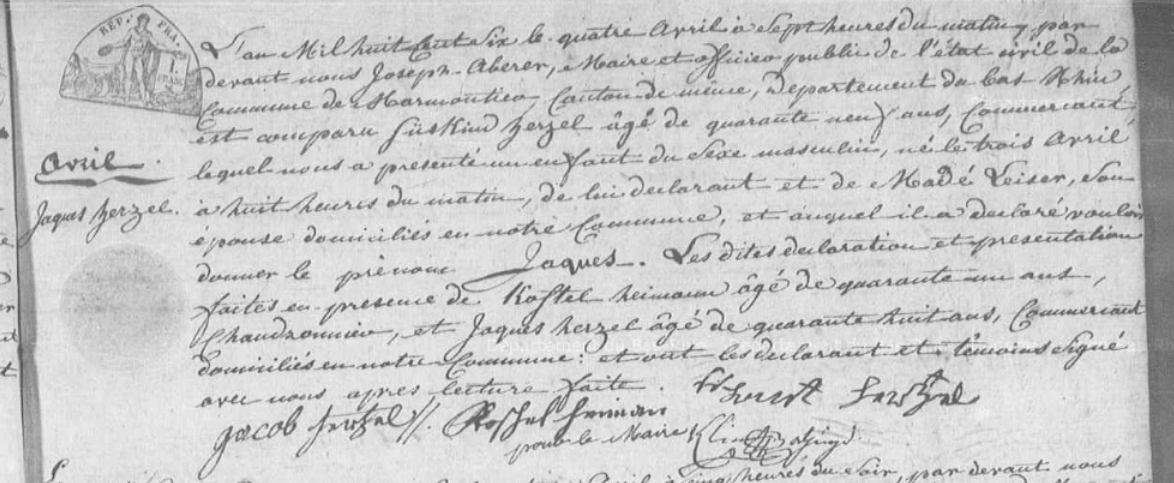 RÉP. FRA.
1.
FRANC
L'an Mil huit Cent Six le quatre Avril à Sept heures du matin, par
devant nous Joseph Aberer, Maire et officier public de l'état civil de la
Commune de Marmoutier, Canton de même, Departement du bas Rhin
est comparu Süskind herzel âgé de quarante neuf ans, Commercant
lequel nous a presenté un enfant du Sexe masculin, né le trois Avril
à huit heures du matin, de lui declarant et de Madé Leiser, Son
épouse domiciliés en notre Commune, et auquel il a declaré vouloir
donner le prénom Jaques. Les dites declaration et presentation
faites en presence de Koschel heimann âgé de quarante un ans,
Chaudronnier, et Jaques herzel âgé de quarante huit ans, Commercant
domiciliés en notre Commune : et ont les declarant et témoins Signé
avec nous apres lecture faite.
Avril.
Jaques herzel.
jacob hertzel
heiman
hertzel
pour le Maire
cinq heures du Soir, par devant nous